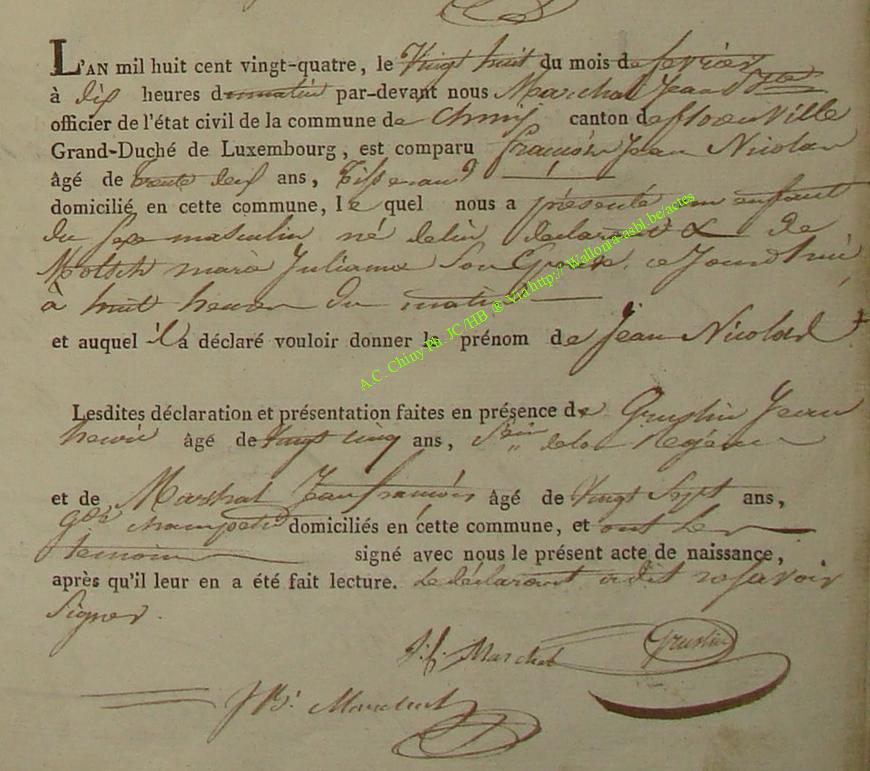 L'AN mil huit cent vingt-quatre, le vingt huit du mois de fevrier
à dix heures du matin par-devant nous Marchal Jean Bte
officier de l'état civil de la commune de Chiny canton de florenville
Grand-Duché de Luxembourg, est comparu françois Jean Nicolas
âgé de trente deux ans, Tisserand
domicilié en cette commune, le quel nous a présenté un enfant
du sexe masculin né de lui declarant & de
marie Juliane Son Epouse, ce Jourdhui
à huit heures du matin
et auquel il a déclaré vouloir donner le prénom de Jean Nicolas
A.C. Chiny Ph. JC/HB @ Via http:// Wallonia-asbl.be/actes
Lesdites déclaration et présentation faites en présence de Gruslin Jean
henri âgé de vingt cinq ans, de la
et de Marchal Jean françois âgé de vingt Sept ans,
gde champetre domiciliés en cette commune, et ont les
temoins signé avec nous le présent acte de naissance,
après qu'il leur en a été fait lecture. le déclarant a dit ne savoir
Signer.
J. f. Marchal Gruslin
J B: Marchal